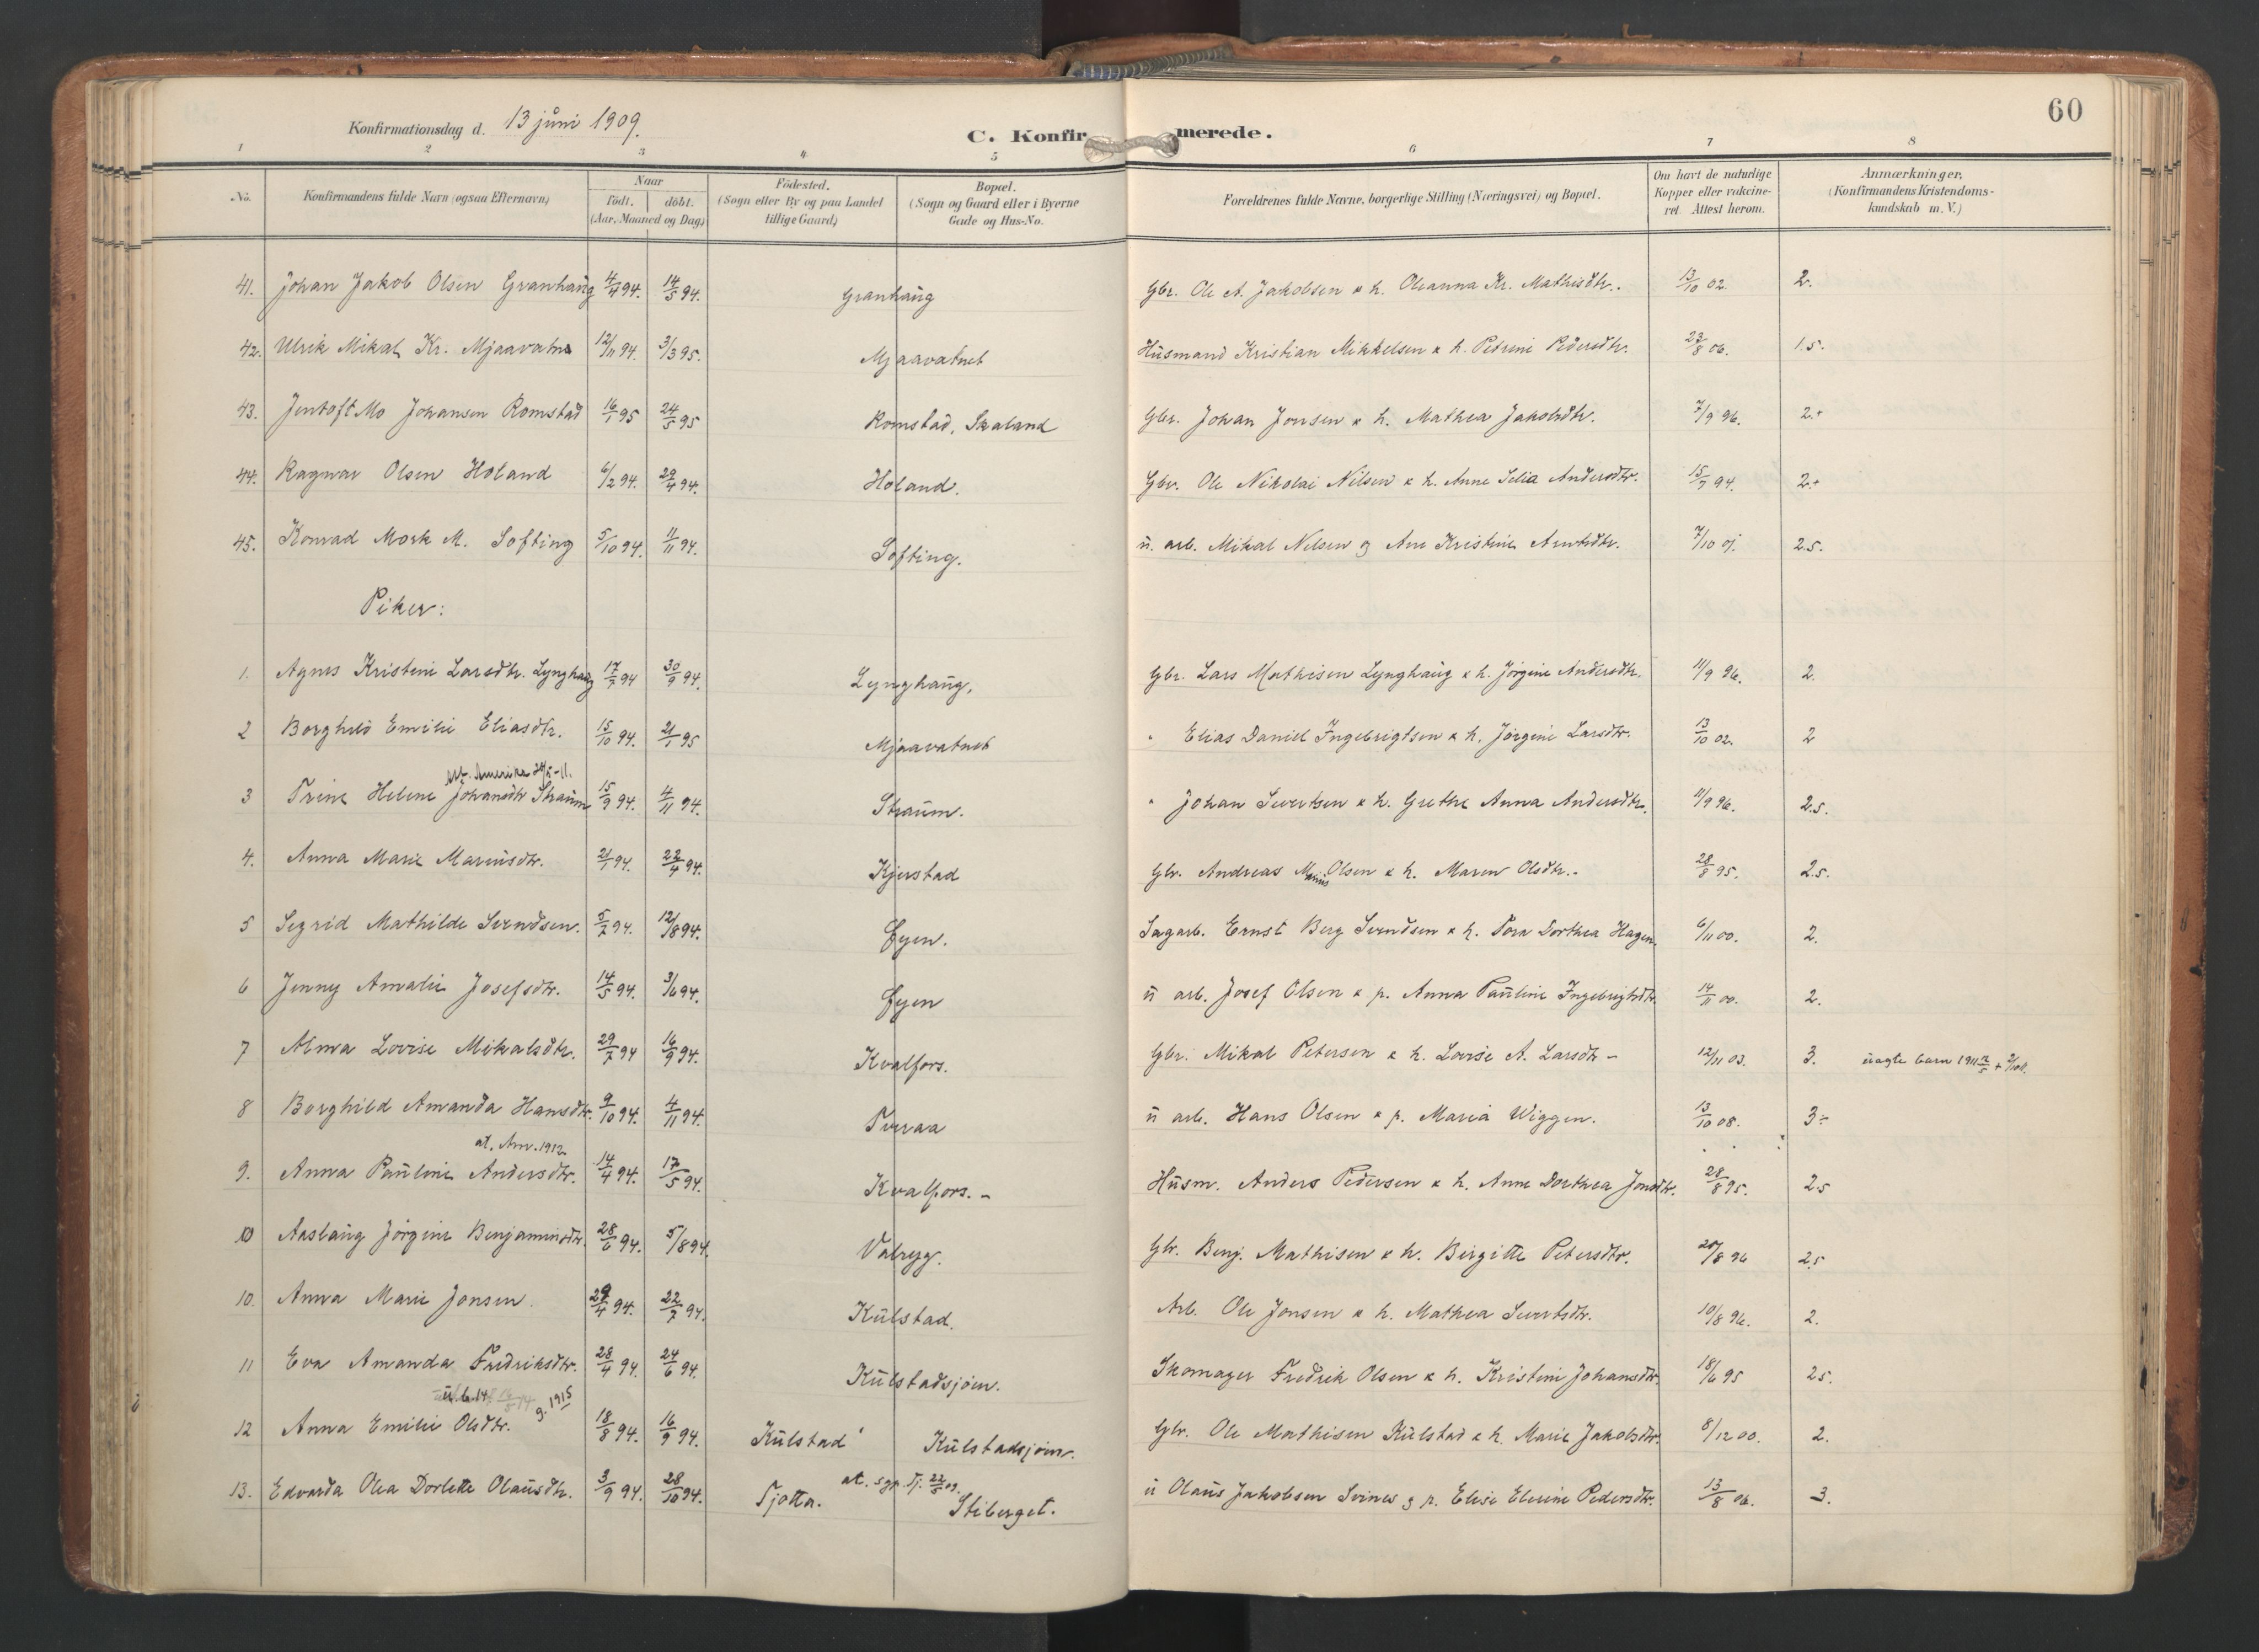 60
Konfirmationsdag d. 13 juni 1909.
C. Konfirmerede.
1 2 3 4 5 6 7 8
No. Konfirmandens fulde Navn (ogsaa Efternavn) Naar født. døbt. (Aar, Maaned og Dag) Fødested. (Sogn eller By og paa Landet tillige Gaard) Bopæl. (Sogn og Gaard eller i Byerne Gade og Hus-No. Forældrenes fulde Navne, borgerlige Stilling (Næringsvei) og Bopæl. Om havt de naturlige Kopper eller vakcineret. Attest herom. Anmærkninger. (Konfirmandens Kristendomskundskab m. V.)
41. Johan Jakob Olsen Granhaug 4/4 94. 14/5 94. Granhaug Gbr. Ole A. Jakobsen & h. Oleanna Kr. Mathisdtr. 13/10 02. 2.
42. Ulrik Mikal Kr. Mjaavatn 12/11 94. 3/3 95. Mjaavatnet Husmand Kristian Mikkelsen & h. Petrine Pedersdtr. 22/8 06. 1.5.
43. Jentoft Mo Johansen Romstad 16/1 95 24/5 95 Romstad, Skaland Gbr. Johan Jonsen & h. Mathea Jakobsdtr. 7/9 96. 2.+
44. Ragnar Olsen Holand 6/2 94. 29/4 94. Holand. Gbr. Ole Nikolai Nilsen & h. Anne Selia Andersdtr. 15/9 94. 2.+
45. Konrad Mork M. Softing 5/10 94. 11/11 94. Softing. u. arb. Mikal Nilsen og Ane Kristine Arntsdtr. 7/10 07. 2.5.
Piker:
1. Agnes Kristine Larsdtr. Lynghaug 17/7 94 30/9 94. Lynghaug. Gbr. Lars Mathisen Lynghaug & h. Jørgine Andersdtr. 11/9 96. 2.
2 Borghild Emilie Eliasdtr. 15/10 94. 21/1 95 Mjaavatnet " Elias Daniel Ingebrigtsen & h. Jørgine Larsdtr. 13/10 02. 2
Amerika
3 Trine Helene Johansdtr Straum 15/9 94. 4/11 94. Straum. " Johan Sivertsen & h. Grethe Anna Andersdtr. 11/9 96. 2.5.
4. Anna Marie Mariusdtr. 21/1 94. 22/4 94. Kjerstad Gbr. Andreas Marius Olsen & h. Maren Olsdtr. 28/8 95. 2.5.
5 Sigrid Mathilde Svendsen. 5/7 94. 12/8 94. Øyen. Sagarb. Ernst Berg Svendsen & h. Tora Dorthea Hagen. 6/11 00. 2.
6 Jenny Amalie Josefsdtr. 14/5 94. 3/6 94. Øyen u arb. Josef Olsen & p. Anna Pauline Ingebrigtsdtr. 14/11 00. 2.
7 Alma Lovise Mikalsdtr. 29/7 94 16/9 94. Kvalfors. Gbr. Mikal Petersen & h. Lovise A. Larsdtr - 12/11 03. 3. uægte barn 1911
8 Borghild Amanda Hansdtr. 9/10 94. 4/11 94. Tveraa u arb. Hans Olsen & p. Maria Wiggen. 13/10 08. 3÷
at. Am. 1912
9. Anna Pauline Andersdtr. 14/4 94. 17/5 94. Kvalfors. - Husm. Anders Pedersen & h. Anne Dorthea Jonsdtr. 28/8 95. 2.5
10 Aaslaug Jørgine Benjaminsdtr. 28/6 94. 5/8 94. Valryg. Gbr. Benj. Mathisen & h. Birgitte Petersdtr. 20/8 96 2.5
10. Anna Marie Jonsen. 29/4 94. 22/7 94. Kulstad. Arb. Ole Jonsen & h. Mathea Sivertsdtr. 10/8 96. 2.
11 Eva Amanda Fredriksdtr. 28/4 94. 24/6 94. Kulstadsjøen. Skomager Fredrik Olsen & h. Kristine Johansdtr. 18/6 95 2.5.
u.b. 14 g. 1915
12 Anna Emilie Olsdtr. 18/8 94. 16/9 94. Kulstad Kulstadsjøen. Gbr. Ole Mathisen Kulstad & h. Marie Jakobsdtr. 8/12 00. 2.
at. sgpr. Tj. 22/5 09.
13. Edvarda Olea Dorlette Olausdtr. 3/9 94. 28/10 94. Tjøtta. Stiberget. u Olaus Jakobsen Svines og p. Elise Elerine Pedersdtr. 13/8 06. 3.